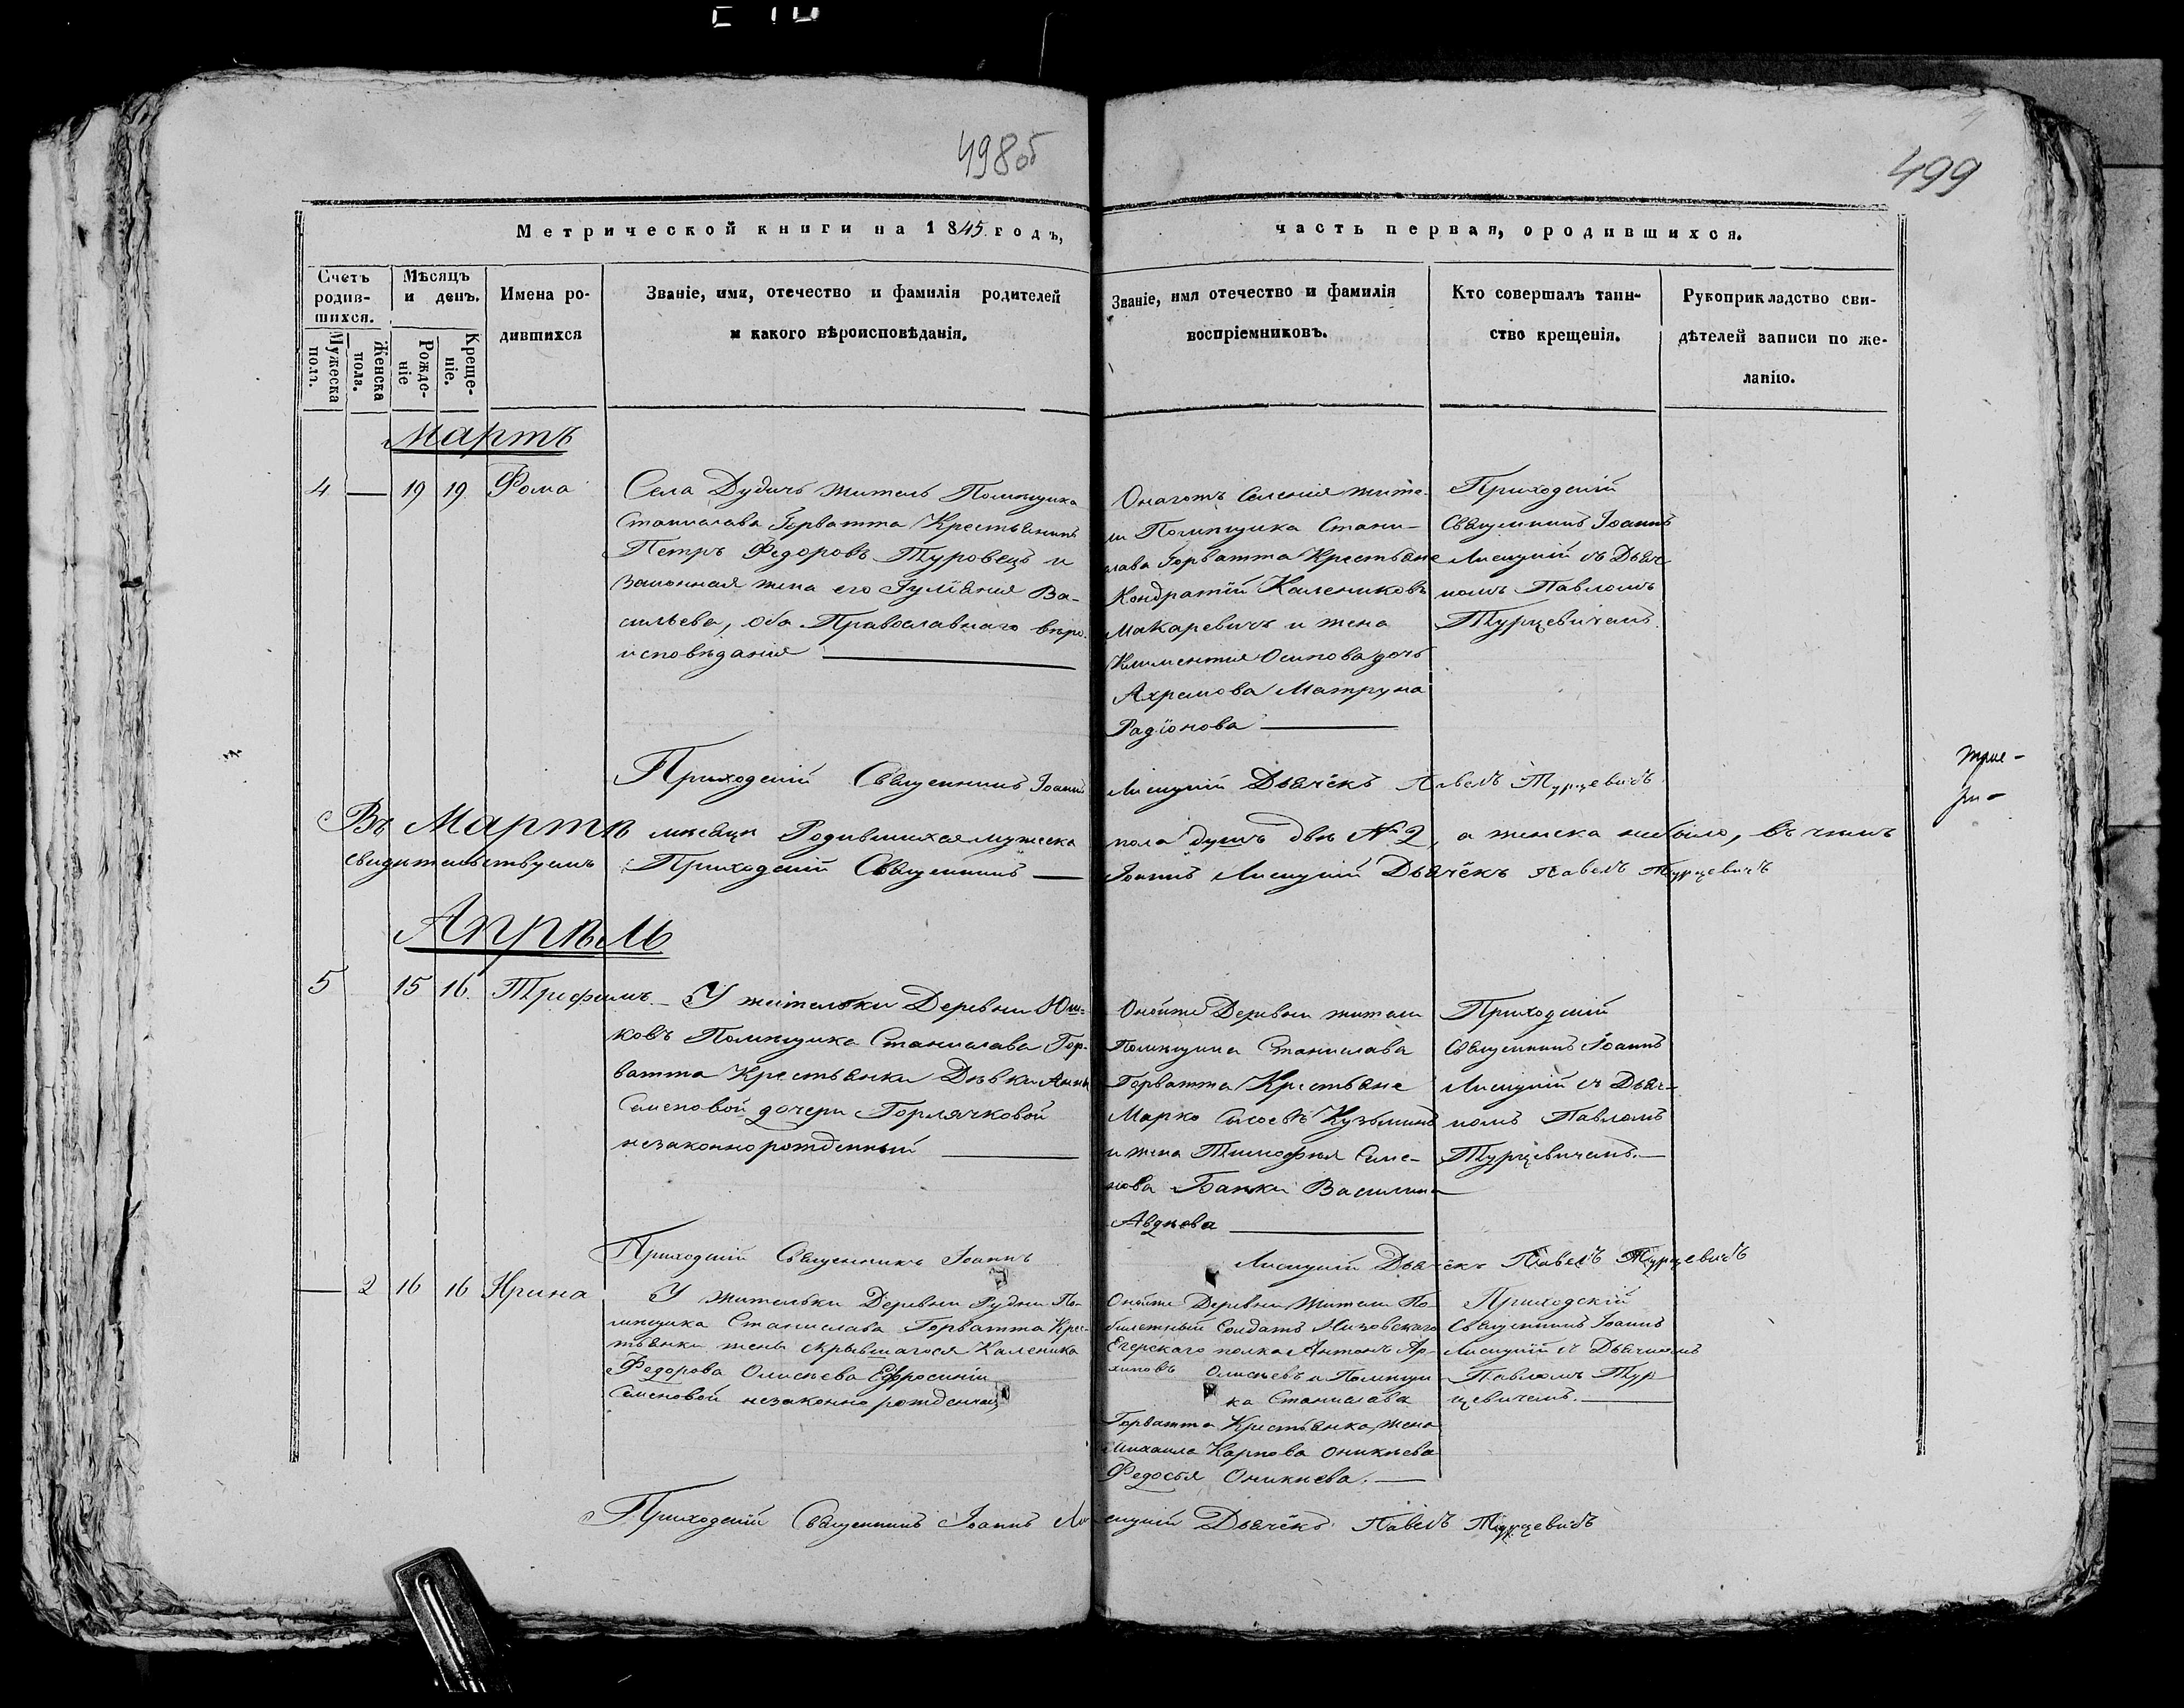 498об
499
Метрической книги на 1845 годъ,
часть первая, о родившихся.
Счетъ родив-
шихся.
Мужеска пола.
Женска пола.
Мѣсяцъ
и день.
Рожде-
ніе
Креще-
ніе.
Имена ро-
дившихся
Званіе, имя, отечество и фамилія родителей
и какого вѣроисповѣданія.
Званіе, имя отечество и фамилія
воспріемниковъ.
Кто совершалъ таин-
ство крещенія.
Рукоприкладство сви-
дѣтелей записи по же-
ланію.
Мартъ
4 — 19 19 Фома
Села Дудичъ житель Помѣщика
Станислава Горватта Крестьянинъ
Петръ Федоровъ Туровецъ и
законная жена его Гуліанія Ва-
сильева, оба Православнаго вѣро-
исповѣданія
Онагожъ Селенія жите-
ли Помѣщика Стани-
слава Горватта Крестьяне
Кондратій Калениковъ
Макаревичъ и жена
Климентія Осипова дочь
Ахремова Матруна
Радіонова
Приходскій
Священникъ Іоаннъ
Лисицкій съ Дьяч-
комъ Павломъ
Турцевичемъ.
Приходскій Священникъ Іоаннъ Лисицкій Дьячёкъ Павелъ Турцевичъ
Въ Мартѣ мѣсяцѣ Родившихся мужеска пола душъ двѣ № 2, а женска небыло, въ чемъ
свидѣтельствуемъ Приходскій Священникъ — Іоаннъ Лисицкій Дьячёкъ Павелъ Турцевичъ
Апрѣль
5 15 16. Трефимъ
У жительки Деревни Юш-
ковъ Помѣщика Станислава Гор-
ватта Крестьянки Дѣвки Анны
Семеновой дочери Горлячковой
незаконнорожденный
Онойже Деревни жители
Помѣщика Станислава
Горватта Крестьяне
Марко Сысоевъ Кузьминъ
и жена Тимофея Семе-
нова Банки Василина
Авдѣева
Приходскій
Священникъ Іоаннъ
Лисицкій съ Дьяч-
комъ Павломъ
Турцевичемъ.
Приходскій Священникъ Іоаннъ Лисицкій Дьячёкъ Павелъ Турцевичъ
— 2 16 16 Ирина
У жительки Деревни Рудни По-
мѣщика Станислава Горватта Крес-
тьянки жены скрывшагося Каленика
Федорова Олисѣева Ефросиніи
Семеновой незаконно рожденная
Онойже Деревни Жители По-
билетный Солдатъ Низовскаго
Егерскаго полка Антонъ Ар-
хиповъ Олисѣевъ и Помѣщи-
ка Станислава
Горватта Крестьянка, жена
Михаила Карпова Оникѣева
Федосья Оникѣева.
Приходскій
Священникъ Іоаннъ
Лисицкій съ Дьячкомъ
Павломъ Тур-
цевичемъ.
Приходскій Священникъ Іоаннъ Лисицкій Дьячёкъ Павелъ Турцевичъ